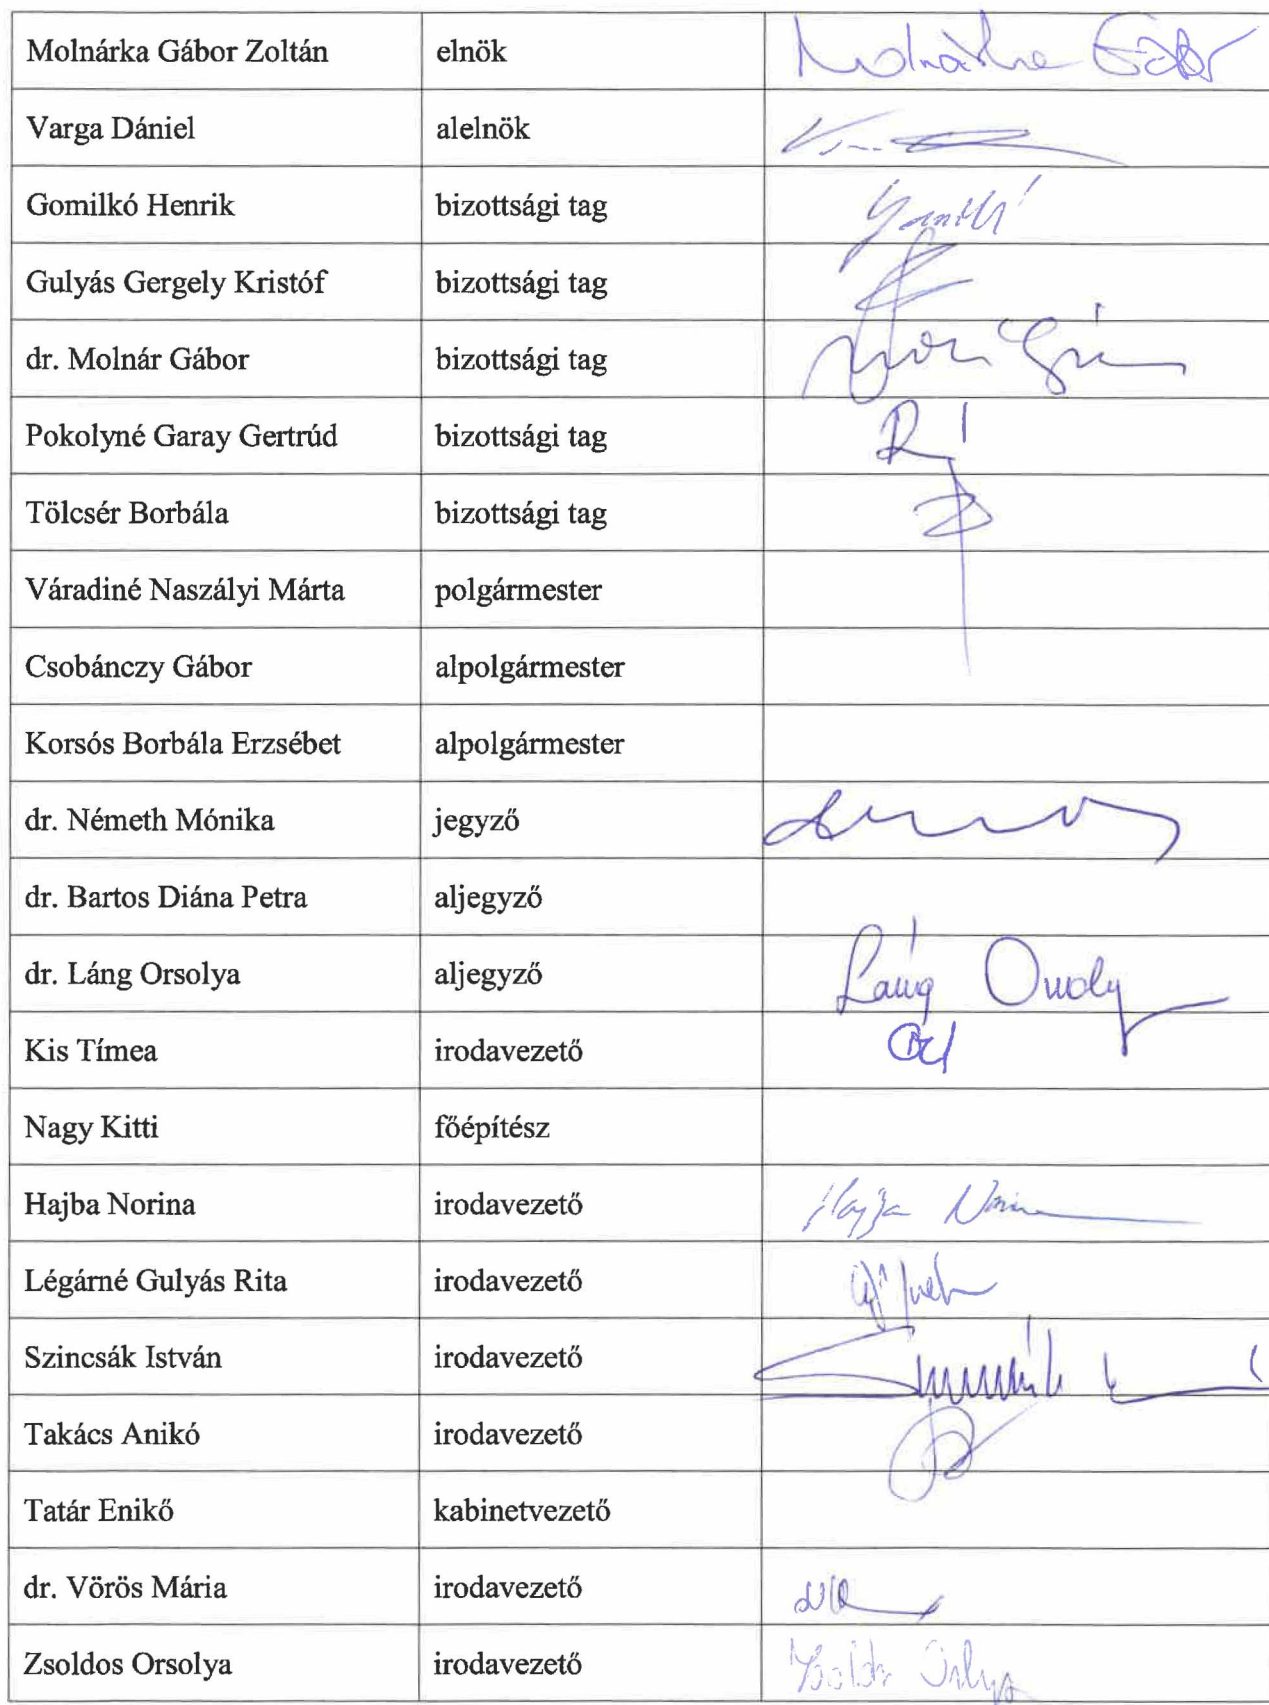 Molnárka Gábor Zoltán elnök Molnárka Gábor
Varga Dániel alelnök
Gomilkó Henrik bizottsági tag
Gulyás Gergely Kristóf bizottsági tag
dr. Molnár Gábor bizottsági tag
Pokolyné Garay Gertrúd bizottsági tag
Tölcsér Borbála bizottsági tag
Váradiné Naszályi Márta polgármester
Csobánczy Gábor alpolgármester
Korsós Borbála Erzsébet alpolgármester
dr. Németh Mónika jegyző
dr. Bartos Diána Petra aljegyző
dr. Láng Orsolya aljegyző Láng Orsolya
Kis Tímea irodavezető
Nagy Kitti főépítész
Hajba Norina irodavezető Hajba Norina
Légárné Gulyás Rita irodavezető
Szincsák István irodavezető
Takács Anikó irodavezető
Tatár Enikő kabinetvezető
dr. Vörös Mária irodavezető
Zsoldos Orsolya irodavezető Zsoldos Orsolya